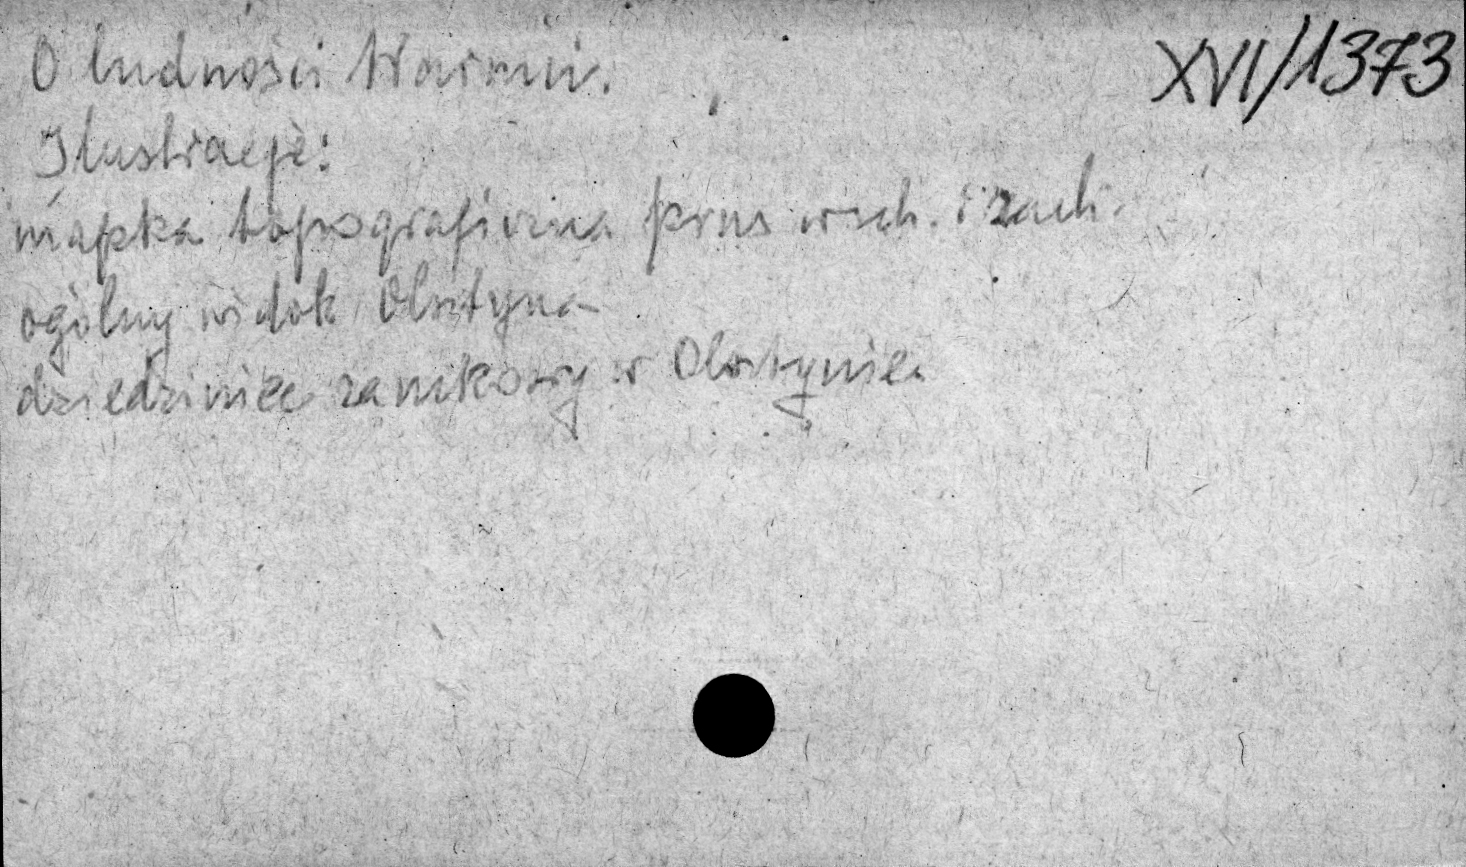 O ludności Warmii.
XVI/1373
Ilustracje:
mapka topograficzna prus wsch. i zach.
ogólny widok Olsztyna
dziedziniec zamkowy w Olsztynie.